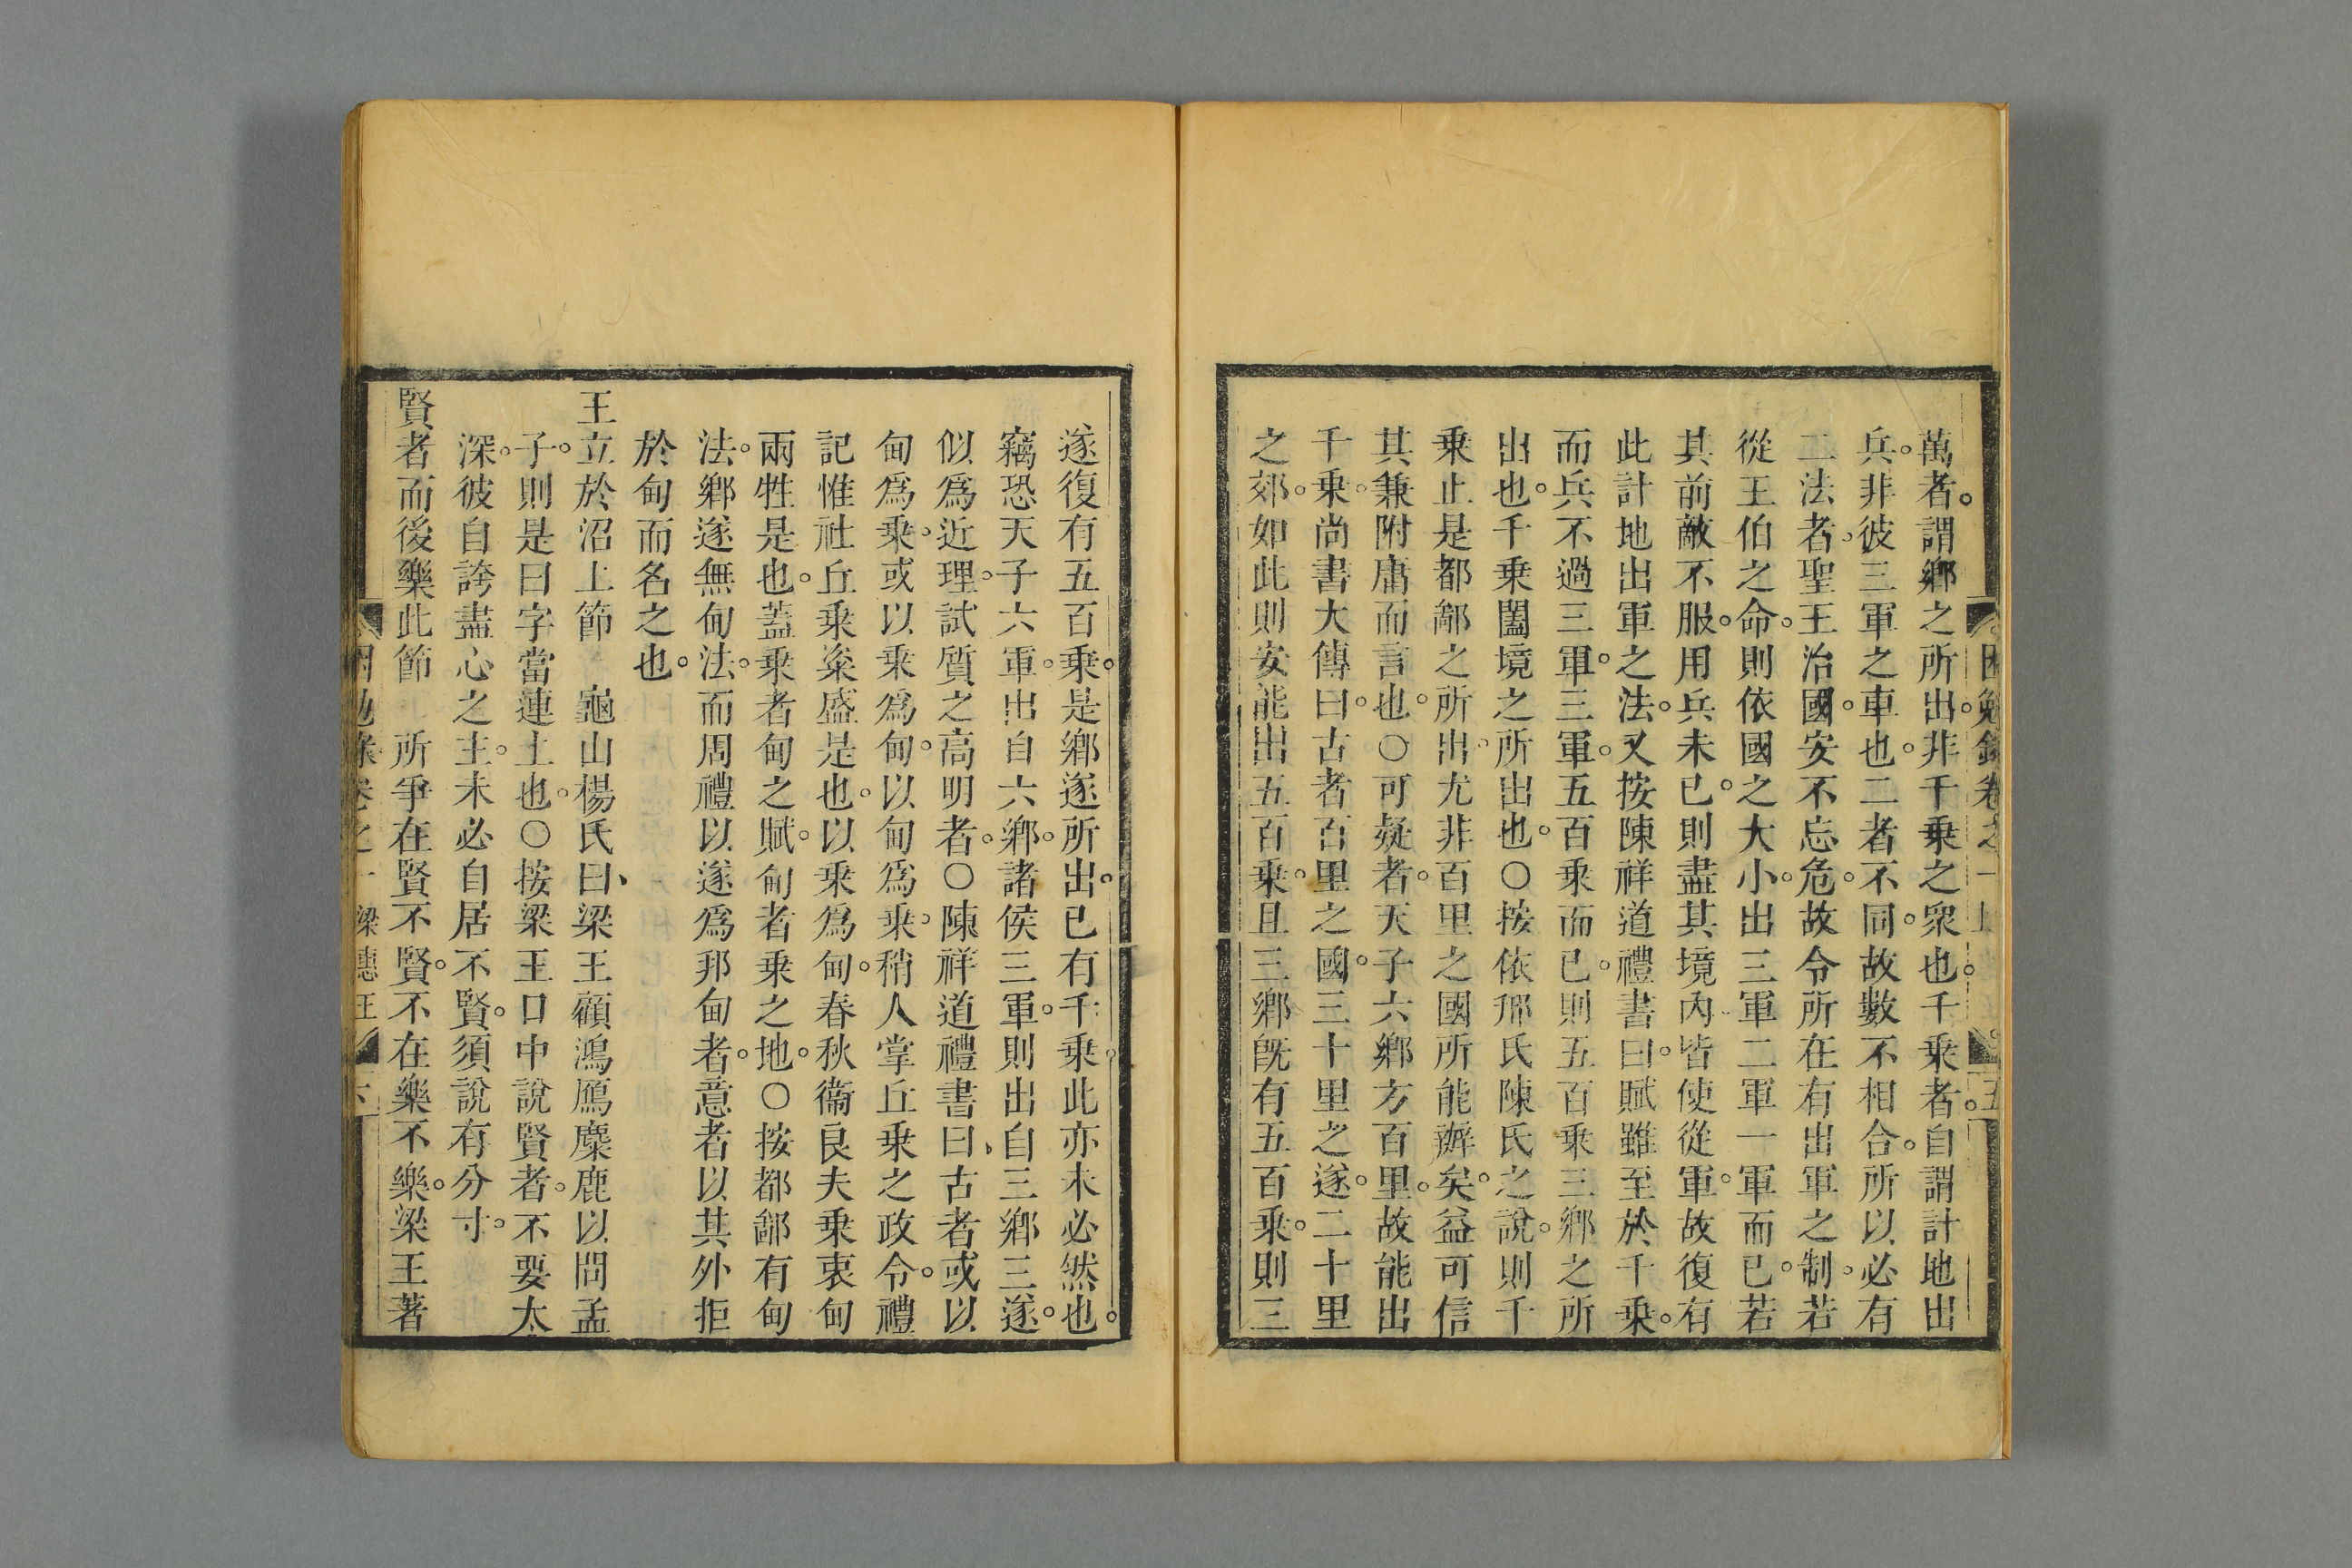 困勉錄卷之一上 五
萬者。謂鄉之所出。非千乗之衆也。千乗者。自謂計地出
兵。非彼三軍之車也。二者不同。故數不相合。所以必有
二法者。聖王治國。安不忘危。故令所在有出軍之制。若
從王伯之命。則依國之大小。出三軍二軍一軍而已。若
其前敵不服。用兵未已。則盡其境內皆使從軍。故復有
此計地出軍之法。又按陳祥道禮書曰。賦雖至於千乗。
而兵不過三軍。三軍。五百乗而已。則五百乗三鄉之所
出也。千乗闔境之所出也。○按依邢氏陳氏之說。則千
乗止是都鄙之所出。尤非百里之國所能辦矣。益可信
其兼附庸而言也。○可疑者。天子六鄉方百里。故能出
千乗。尚書大傳曰。古者百里之國。三十里之遂。二十里
之郊。如此則安能出五百乗。且三鄉既有五百乗。則三
遂復有五百乗。是鄉遂所出。已有千乗。此亦未必然也。
竊恐天子六軍。出自六鄉。諸侯三軍。則出自三鄉三遂。
似爲近理。試質之高明者。○陳祥道禮書曰、古者或以
甸爲乗。或以乗爲甸。以甸爲乗。稍人掌丘乗之政令。禮
記惟社丘乗粢盛是也。以乗爲甸。春秋衞良夫乗衷甸
兩牲是也。蓋乗者甸之賦。甸者乗之地。○按都鄙有甸
法。鄉遂無甸法。而周禮以遂爲邦甸者。意者以其外拒
於甸而名之也。
王立於沼上節 龜山楊氏曰、梁王顧鴻鴈麋鹿以問孟
子。則是曰字當連上也。○按梁王口中說賢者。不要太
深。彼自誇盡心之主。未必自居不賢。須說有分寸。
賢者而後樂此節 所爭在賢不賢。不在樂不樂。梁王著
困勉錄卷之一 梁惠王